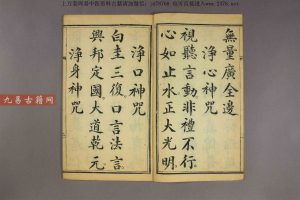 無量廣全邊
淨心神咒
視聽言動非禮不行
心如止水正大光明
淨口神咒
白圭三復口言法言
興邦定國大道乾元
淨身神咒
九易古籍网